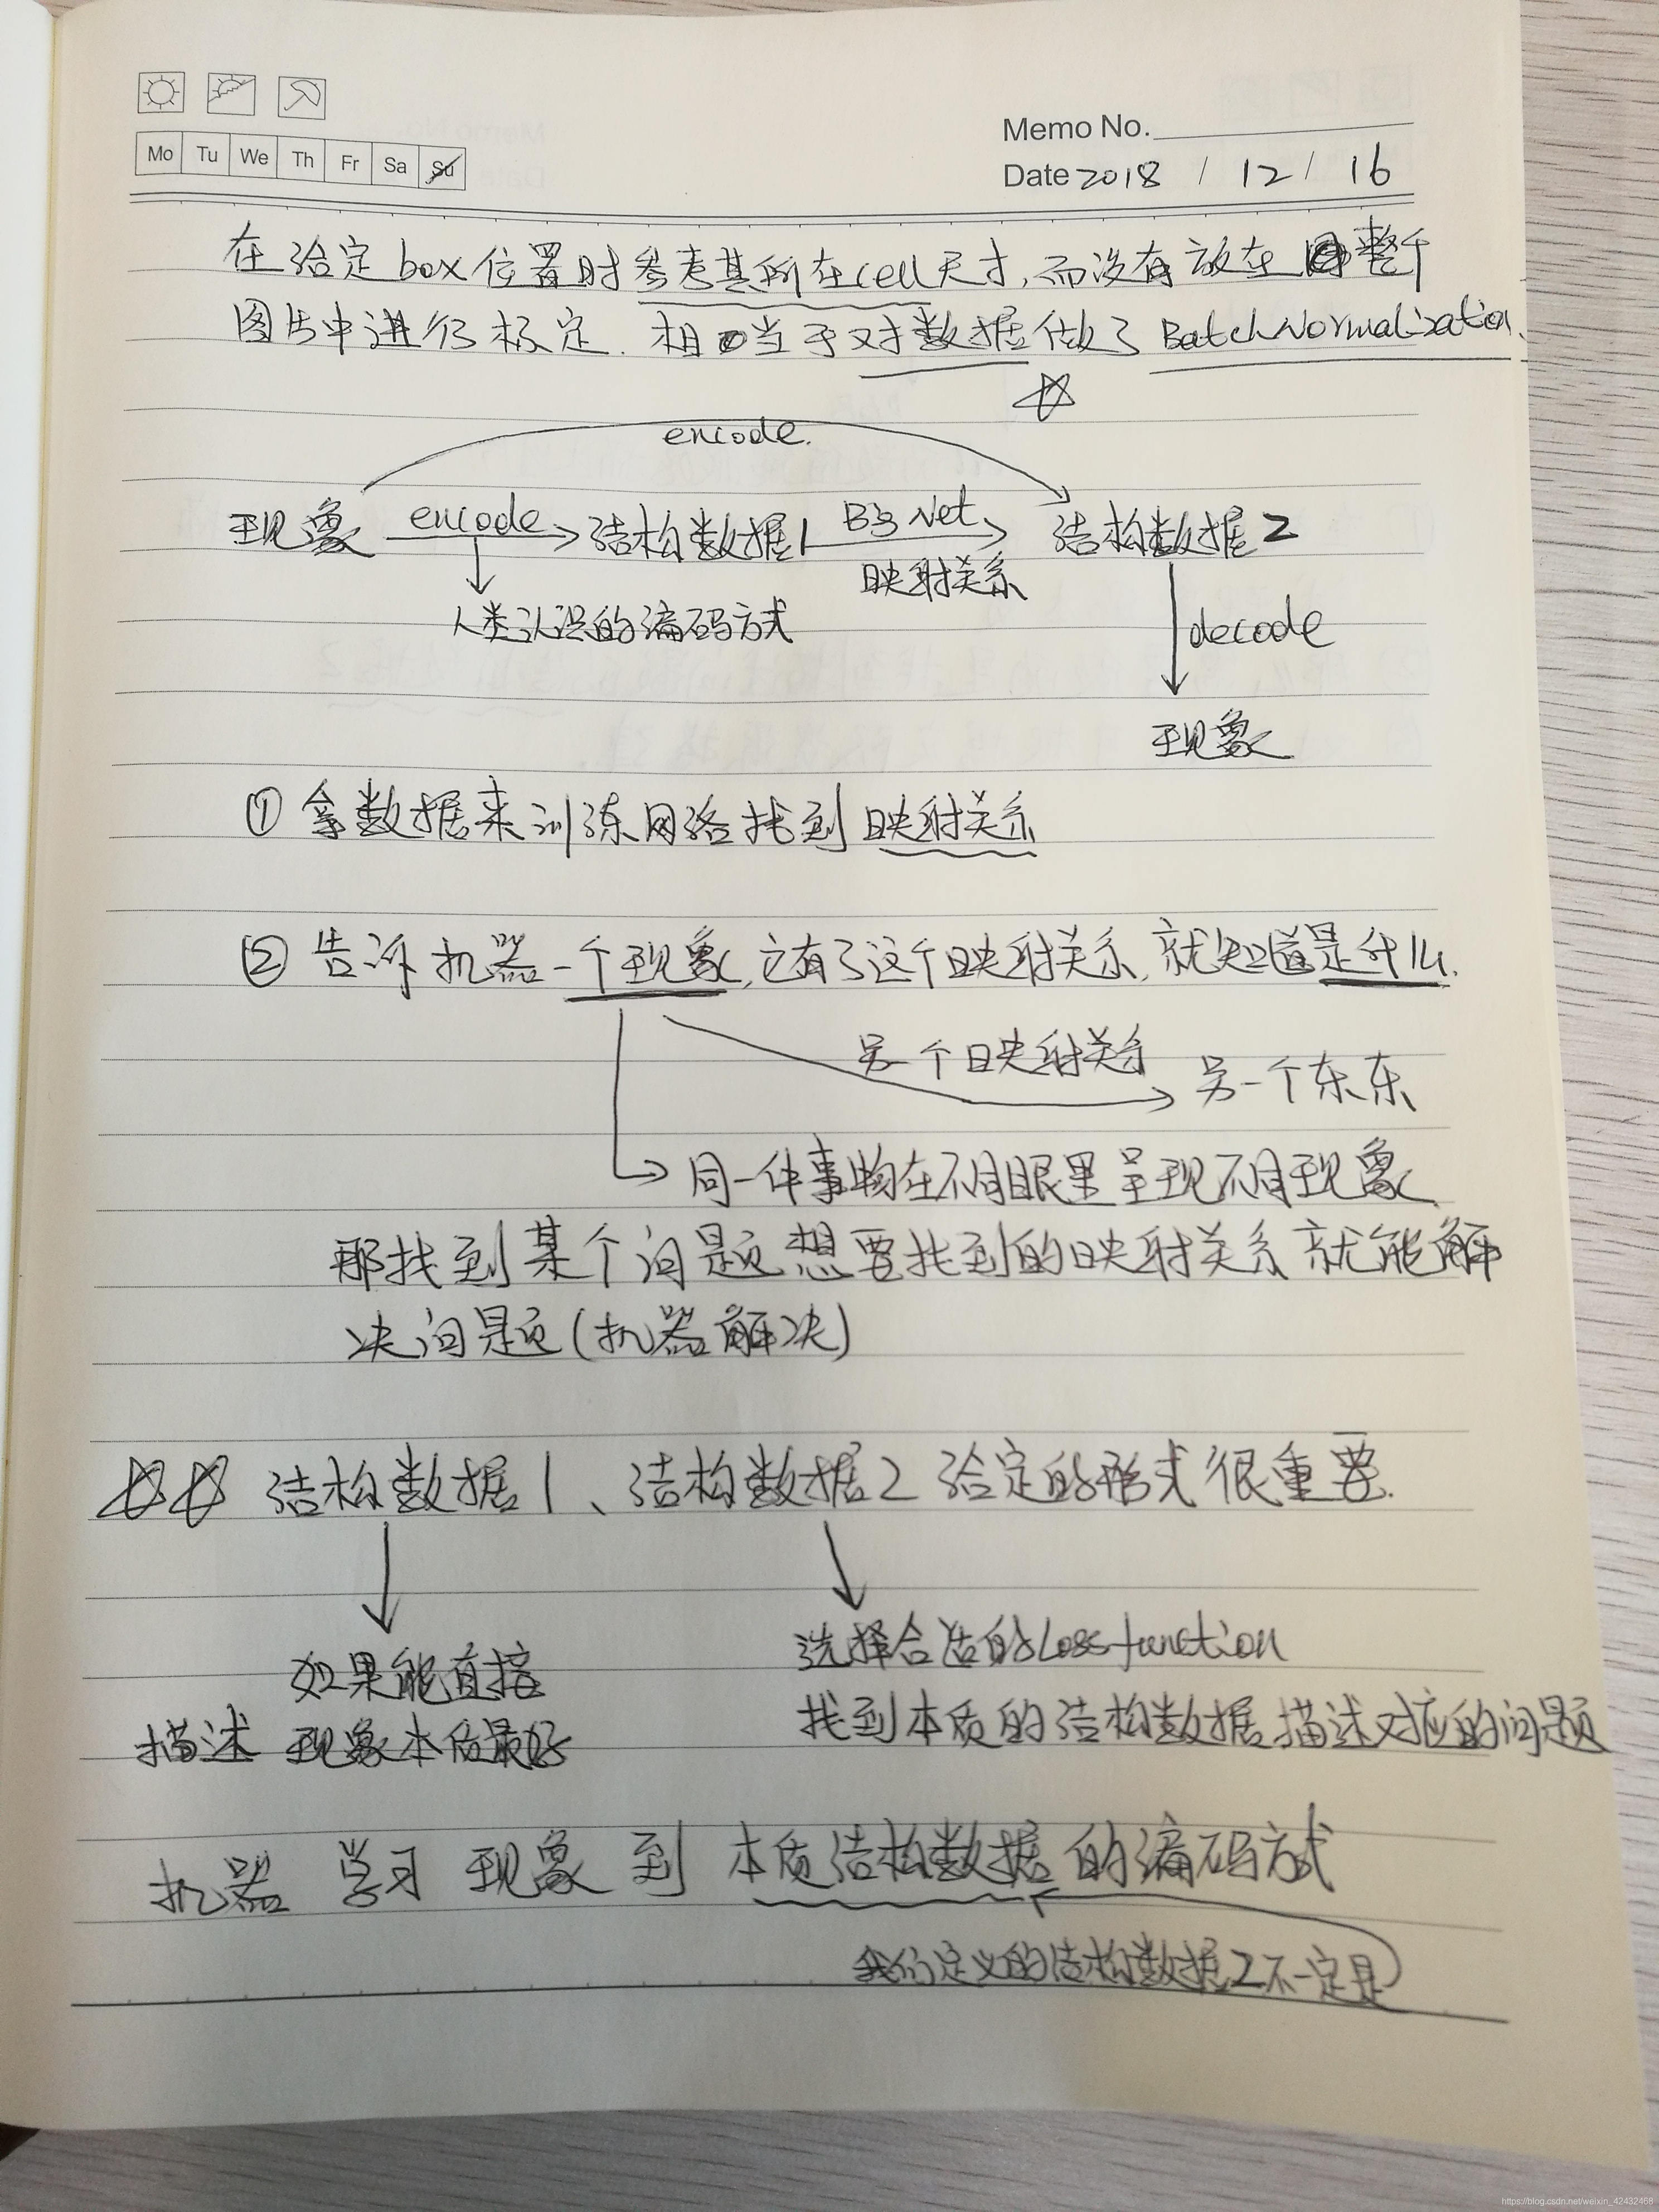 Memo No.
Mo Tu We Th Fr Sa Su
Date 2018 / 12 / 16
在给定box位置时参考其所在cell尺寸,而没有放在整个
图片中进行标定. 相当于对数据做了BatchNormalization.
encode.
现象 encode 结构数据1 Net 结构数据2
映射关系
人类认识的编码方式
decode
现象
① 拿数据来训练网络找到映射关系
② 告诉机器一个现象,它有了这个映射关系,就知道是什么.
另一个映射关系
另一个东东
同一件事物在不同眼里呈现不同现象.
那找到某个问题想要找到的映射关系就能解
决问题(机器解决)
结构数据1、结构数据2给定的形式很重要.
如果能直接
描述 现象本质最好
选择合适的Loss function
找到本质的结构数据描述对应的问题
机器 学习 现象 到 本质结构数据的编码方式
我们定义的结构数据2不一定是
https://blog.csdn.net/weixin_42432468